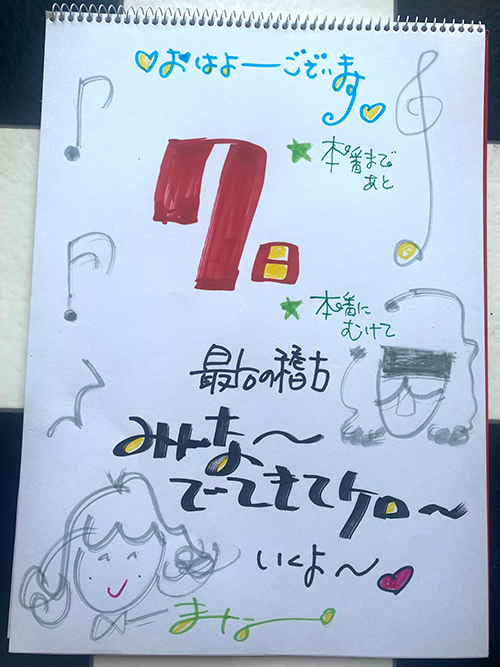 おはよーございます
本番まで
あと
7日
本番に
むけて
最后の稽古
みんな〜
でてきてケロ〜
いくよ〜